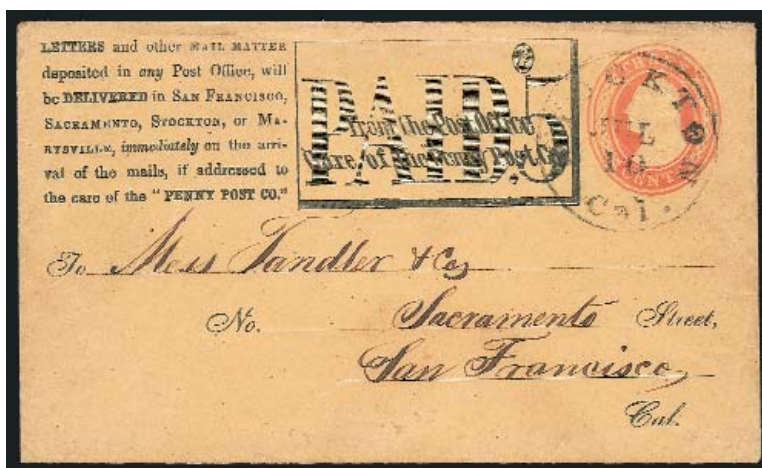 LETTERS and other MAIL MATTER
deposited in any Post Office, will
be DELIVERED in SAN FRANCISCO,
SACRAMENTO, STOCKTON, or MA-
RYSVILLE, immediately on the arri-
val of the mails, if addressed to
the care of the "PENNY POST CO."
PAID. 5
from the Post Office
Care of the Penny Post Co.
CKTON
JUL
10
Cal.
To Mess Tandler & Co
No. Sacramento Street,
San Francisco,
Cal.